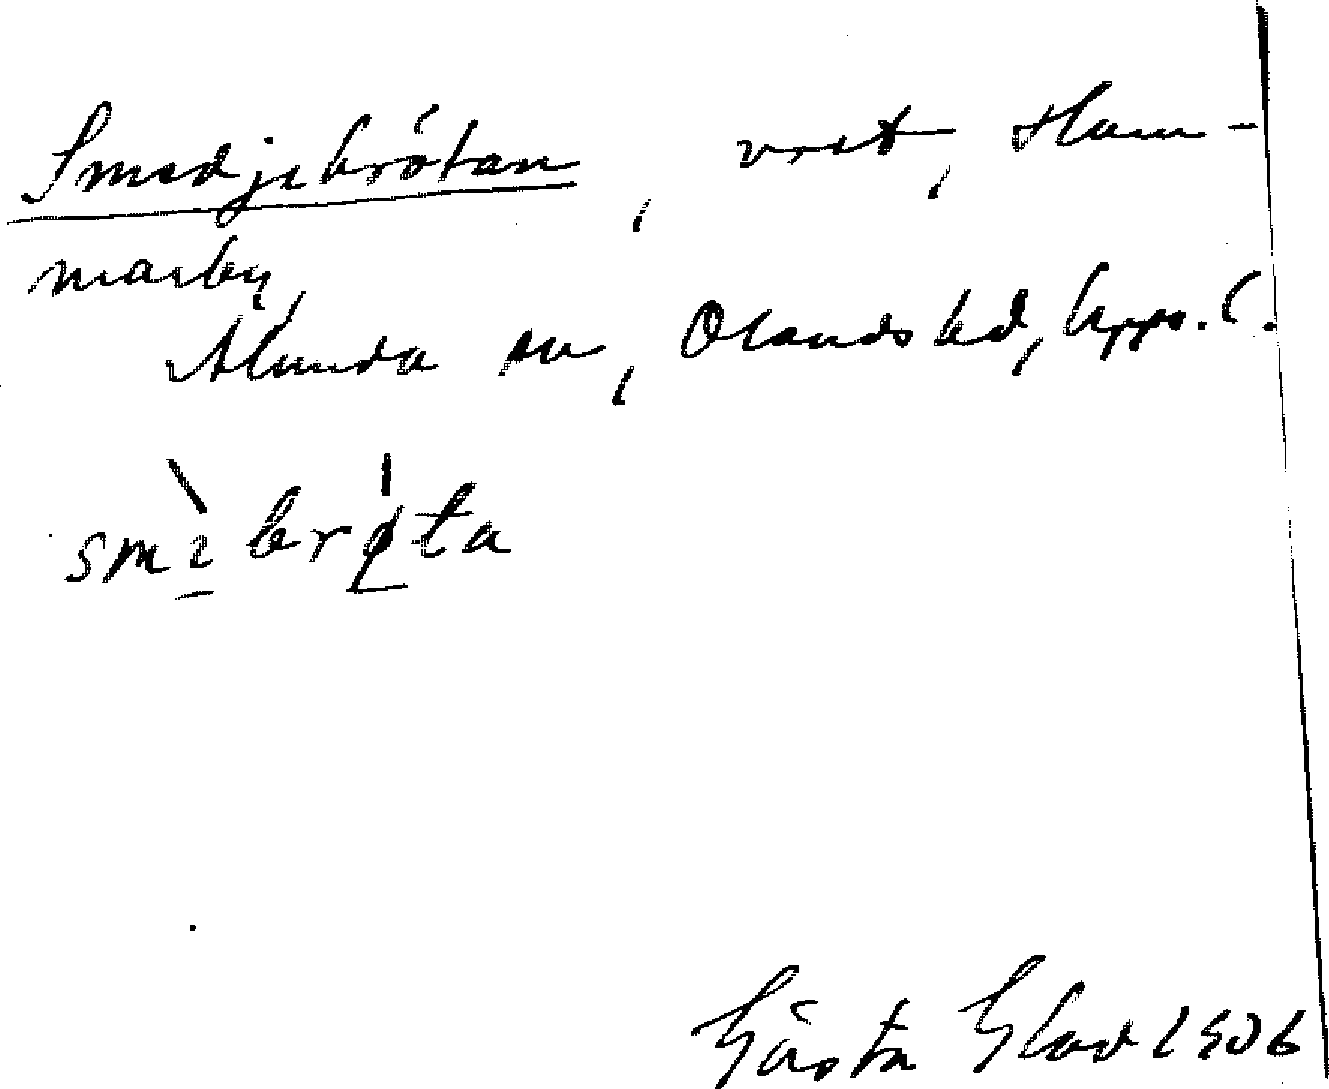 Smedjebrötan, vret, Ham-
marby,
Alunda sn, Olands hd, Upps. l.
smìbrǿta
Gösta Glad 1906